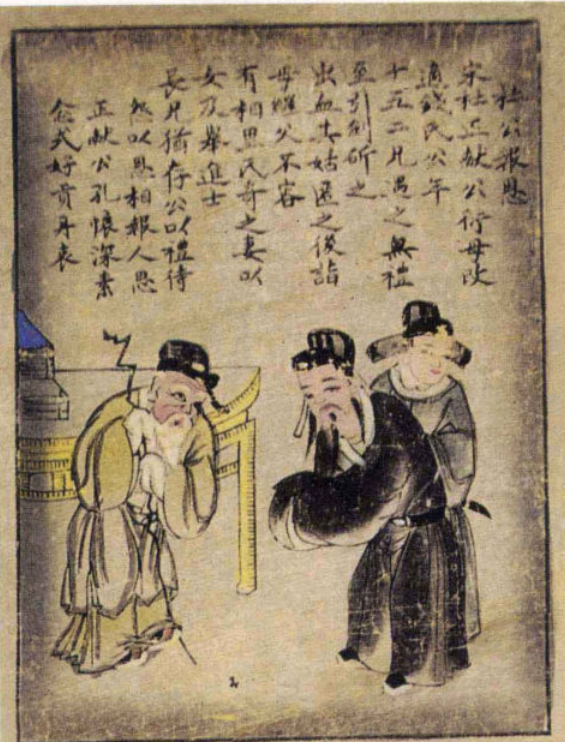 杜公報恩
宋杜正献公衍母改
適錢氏公年
十五二兄遇之無禮
至引劍斫之
出血其姑匿之後詣
母繼父不容
有相里氏奇之妻以
女及舉進士
長兄猶存公以禮待
以恩相報人恩
正献公孔懷深素
念式好丹衷